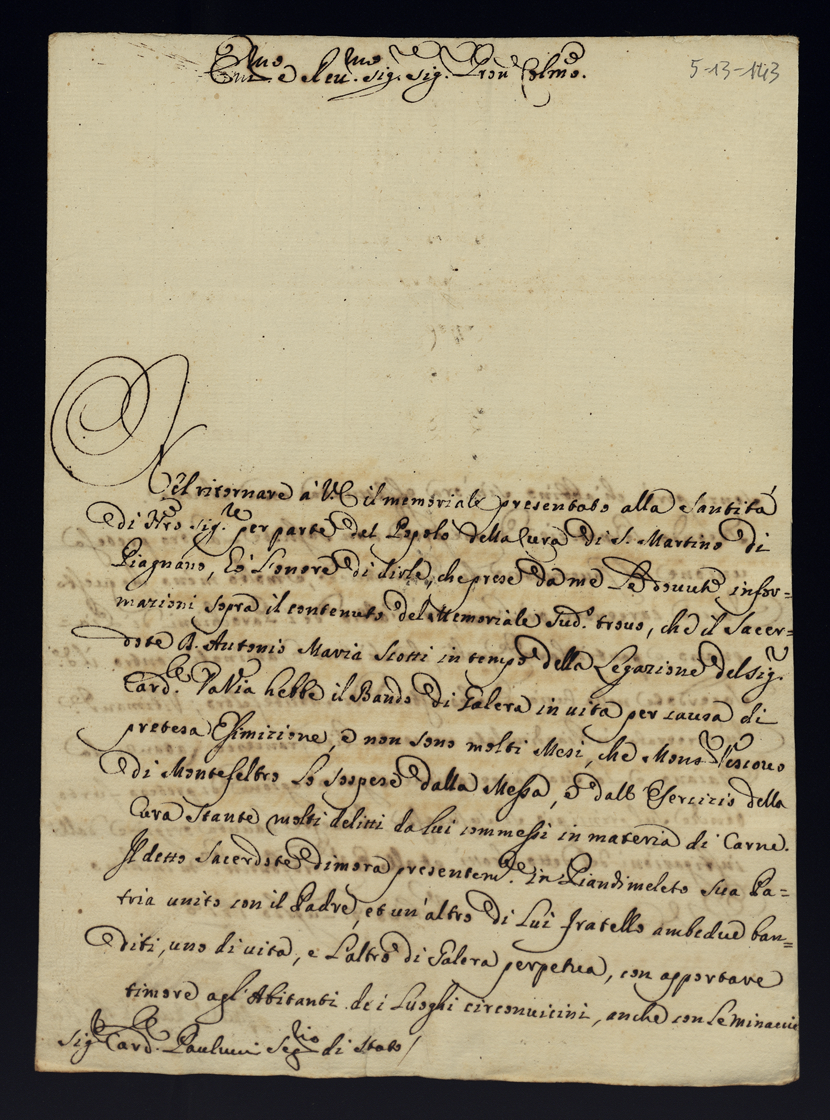 Em.mo e Reu.mo Sig.r Sig.r Pron Colmo.
5-13-143
Nel ritornare à V.E. il memoriale presentato alla Santità
di Nro Sig.re per parte del Popolo della Cura di S. Martino di
Piagnano, hò l'onore di dirle, che prese da me le dovute infor=
mazioni sopra il contenuto del Memoriale sud.o trovo, che il Sacer=
dote D. Antonio Maria Scotti in tempo della Legazione del Sig.r
Card.le Davia hebbe il Bando di Galera in vita per causa di
pretesa Esimizione, e non sono molti Mesi, che Mons.r Vescovo
di Montefeltro lo sospese dalla Messa, e dall'Esercizio della
Cura stante molti delitti da lui commessi in materia di Carne.
Il detto Sacerdote dimora presentem.te in Piandimeleto sua Pa=
tria unito con il Padre, et un'altro di lui fratello ambedue ban=
diti, uno di vita, e l'altro di Galera perpetua, con apportare
timore agl'Abitanti dei Luoghi circonvicini, anche con le minaccie
Sig.r Card.le Paulucci Seg.rio di Stato